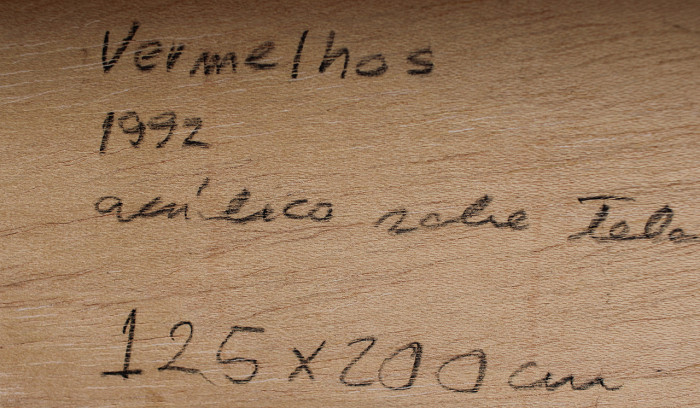 Vermelhos
1992
acrílico sobre Tela
125x200 cm